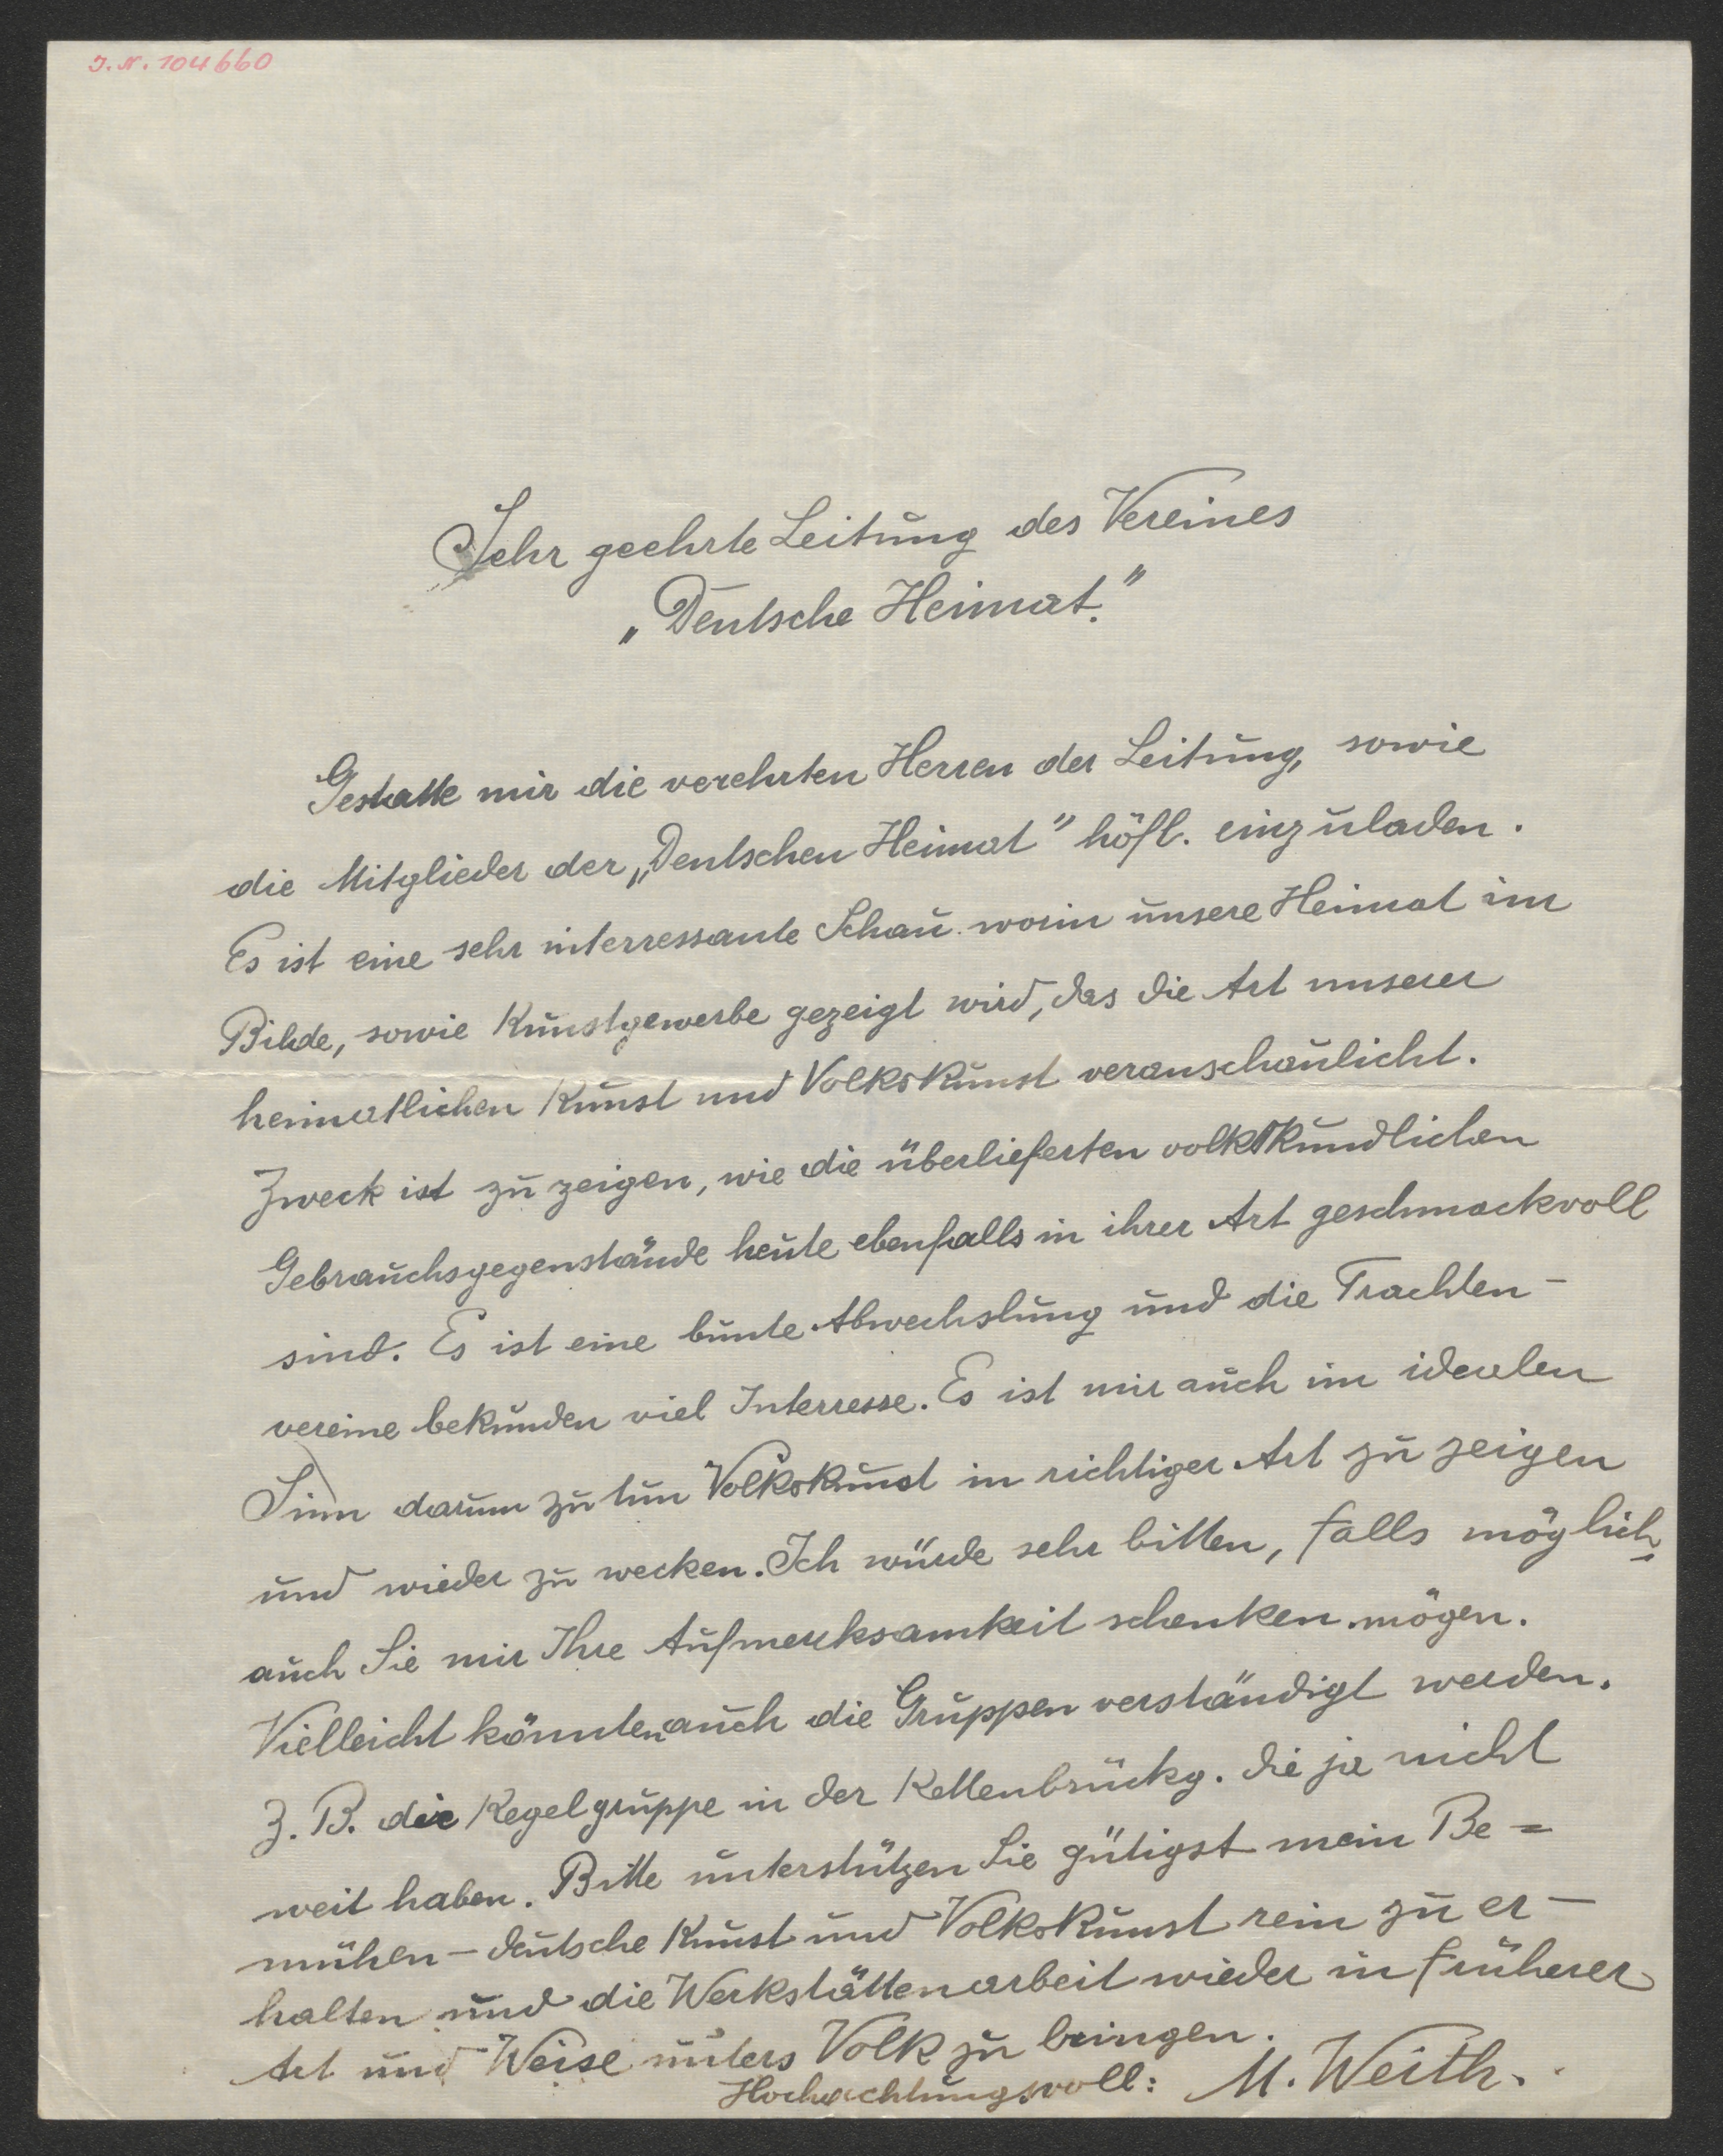 J.N. 104660
Sehr geehrte Leitung des Vereines
„Deutsche Heimat."
Gestatte mir die verehrten Herren der Leitung, sowie
die Mitglieder der „Deutschen Heimat" höfl. einzuladen.
Es ist eine sehr interressante Schau worin unsere Heimat im
Bilde, sowie Kunstgewerbe gezeigt wird, das die Art unserer
heimatlichen Kunst und Volkskunst veranschaulicht.
Zweck ist zu zeigen, wie die überlieferten volkskundlichen
Gebrauchsgegenstände heute ebenfalls in ihrer Art geschmackvoll
sind. Es ist eine bunte Abwechslung und die Trachten-
vereine bekunden viel Interresse. Es ist mir auch im idealen
Sinn darum zu tun Volkskunst in richtiger Art zu zeigen
und wieder zu wecken. Ich würde sehr bitten, falls möglich,
auch Sie mir Ihre Aufmerksamkeit schenken mögen.
Vielleicht könnten auch die Gruppen verständigt werden.
Z. B. die Kegelgruppe in der Kettenbrückg. die ja nicht
weit haben. Bitte unterstützen Sie gütigst mein Be=
mühen – deutsche Kunst und Volkskunst rein zu er-
halten und die Werkstättenarbeit wieder in früherer
Art und Weise unters Volk zu bringen.
Hochachtungsvoll: M. Weith.